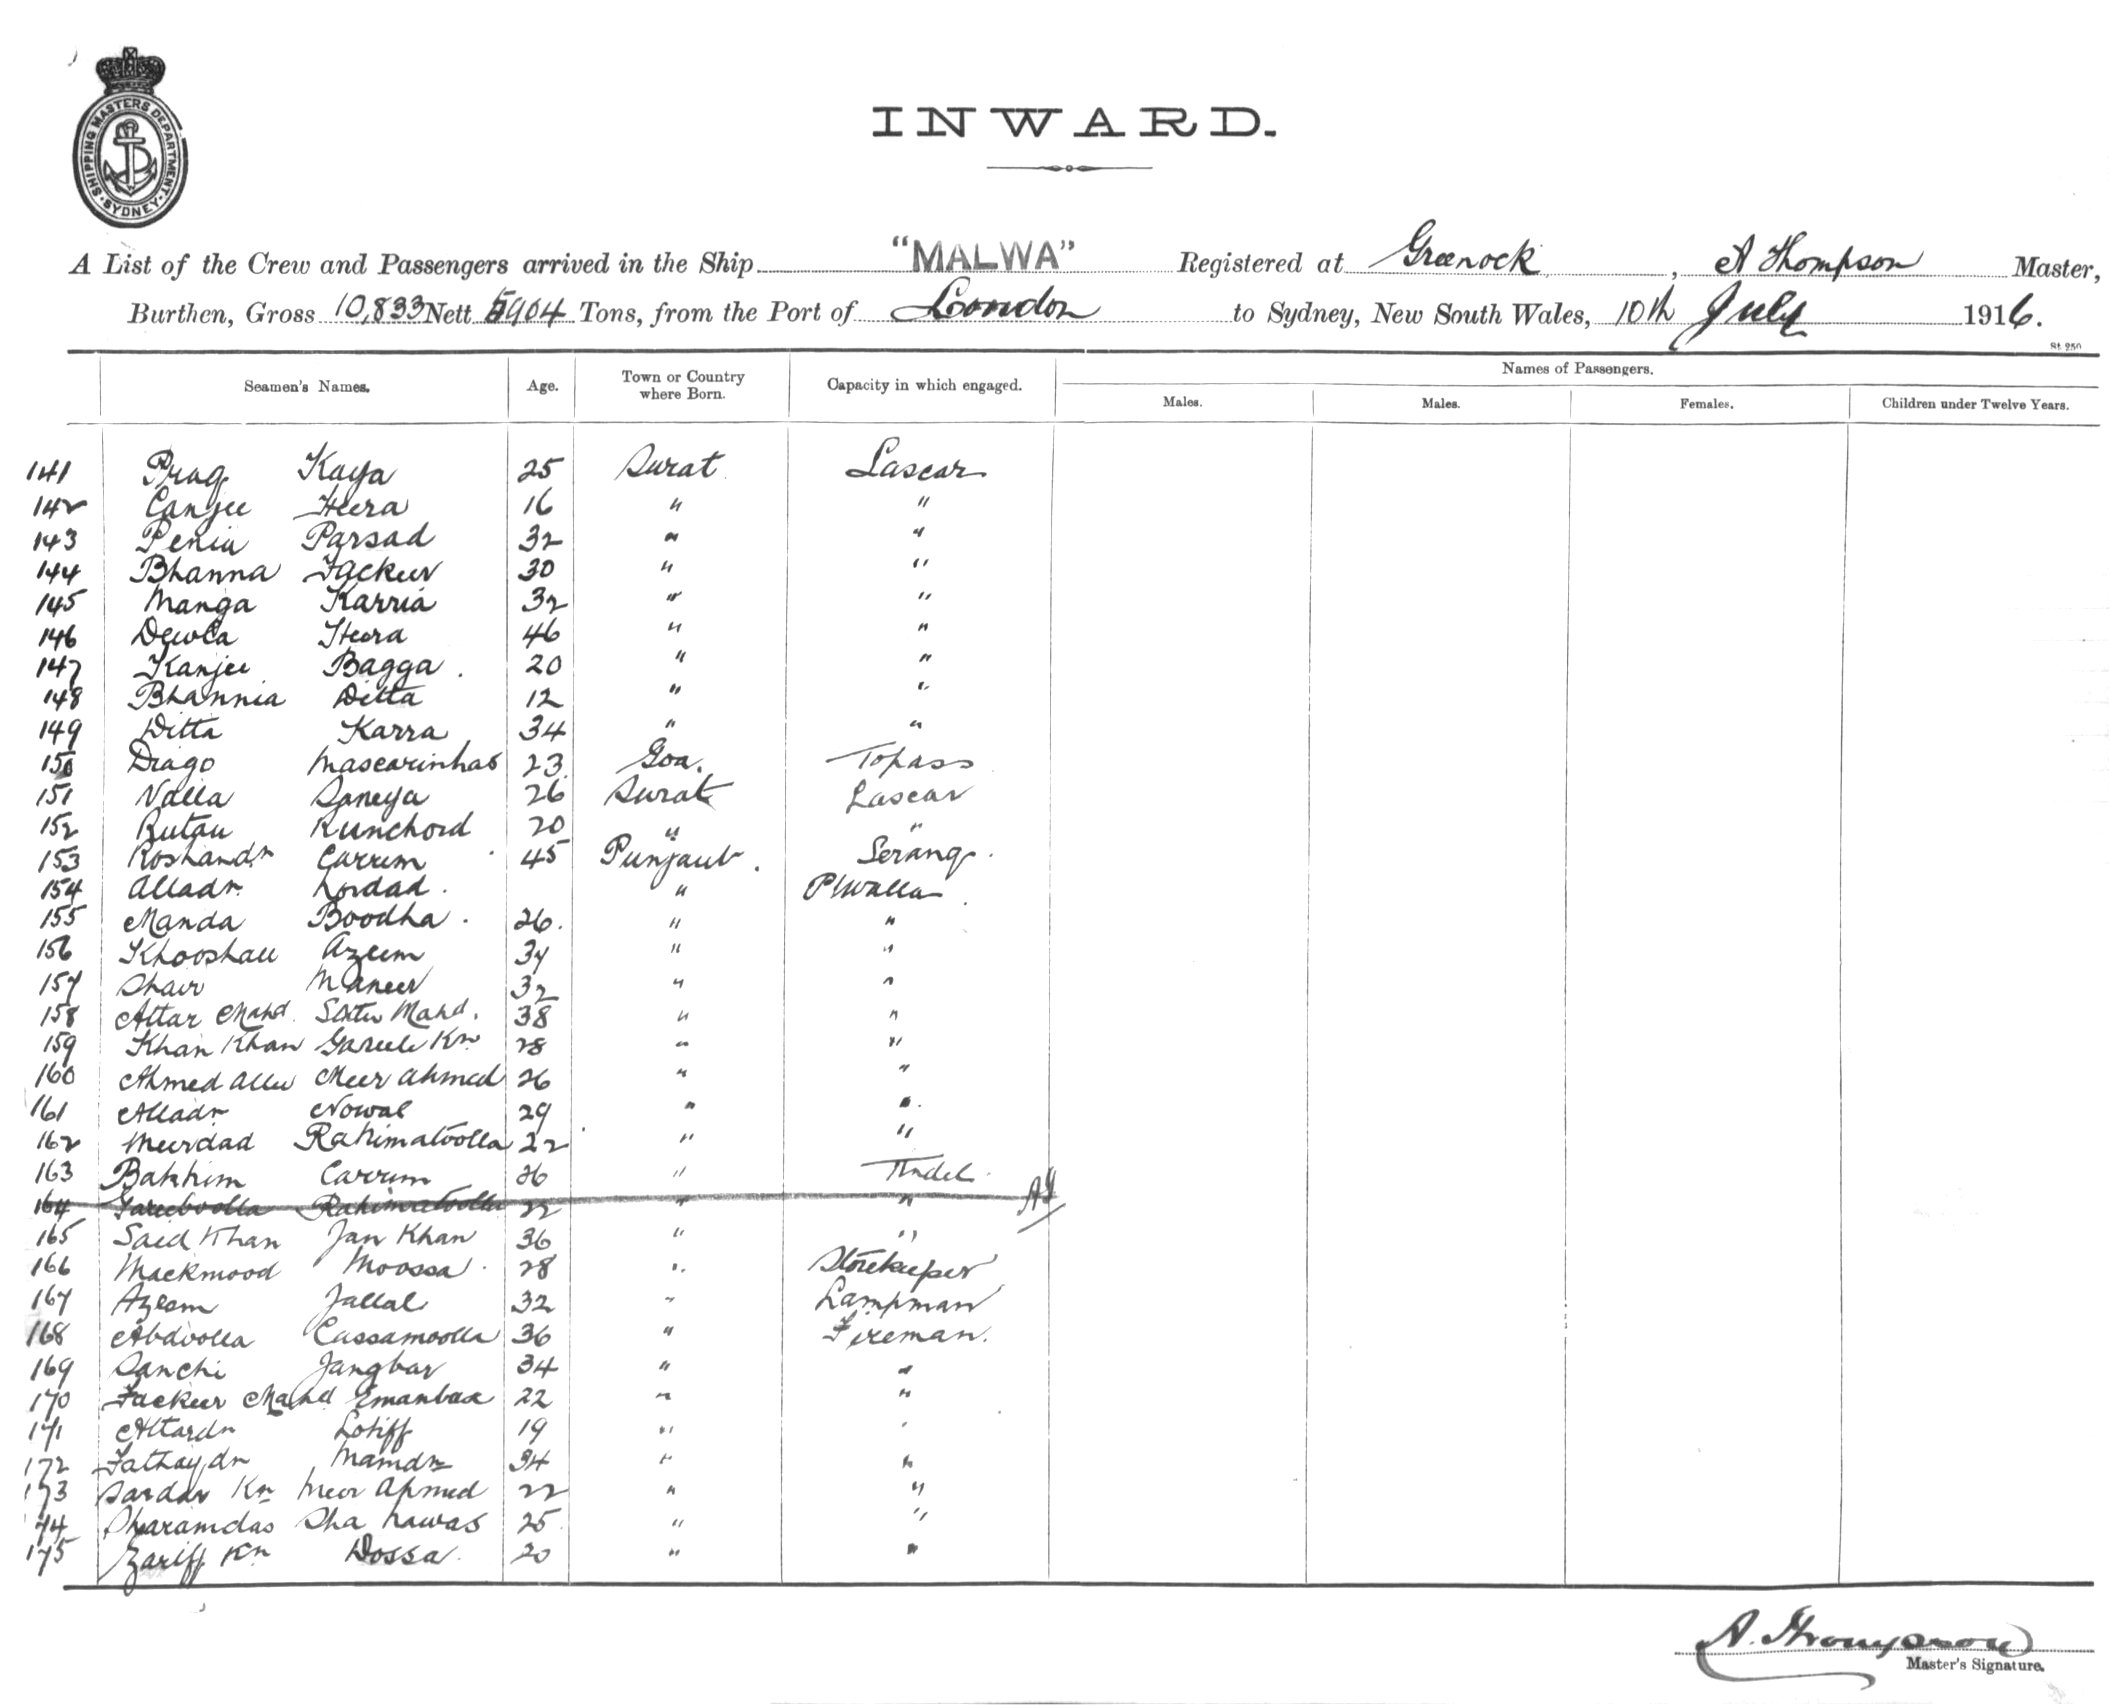 SHIPPING MASTERS DEPARTMENT
SYDNEY
INWARD.
A List of the Crew and Passengers arrived in the Ship "MALWA" Registered at Greenock, A Thompson Master,
Burthen, Gross 10,833 Nett 5904 Tons, from the Port of London to Sydney, New South Wales, 10th July 1916.
St. 250
Seamen's Names. Age. Town or Country where Born. Capacity in which engaged. Names of Passengers.
Males. Males. Females. Children under Twelve Years.
141 Prag Kaya 25 Surat Lascar
142 Canjee Heera 16 " "
143 Penia Parsad 32 " "
144 Bhanna Fackeer 30 " "
145 Manga Karria 32 " "
146 Dewla Heera 46 " "
147 Kanjee Bagga. 20 " "
148 Bhannia Ditta 12 " "
149 Ditta Karra 34 " "
150 Diago Mascarinhas 23 Goa. Topass
151 Valla Daneya 26 Surat Lascar
152 Rutau Runchord 20 " "
153 Roshandn Carrim 45 Punjaub. Serang.
154 Alladn Lordad. " P/Walla.
155 Manda Boodha. 26. " "
156 Khooshall Azeem 34 " "
157 Shair Maneer 32 " "
158 Attar Mahd. Mahd. 38 " "
159 Khan Khan Kn 28 " "
160 Ahmed Allee Meer Ahmed 26 " "
161 Alladn Nowal 29 " "
162 Meerdad Rahimatoolla 22 " "
163 Carrim 26 " Tindel.
164 Gareeboolla Rahimatoolla 22 " " AT
165 Said Khan Jan Khan 36 " "
166 Mackmood Moossa. 28 " Storekeeper
167 Azeam Jallal 32 " Lampman
168 Abdoolla Cassamoolla 36 " Fireman.
169 Sanchi Jangbar 34 " "
170 Fackeer Mahd Emanbax 22 " "
171 Attardn Lotiff 19 " "
172 Fathaydn Mamdn 34 " "
173 Sardar Kn Meer Ahmed 22 " "
174 Sharamdas Sha Nawas 25 " "
175 Zariff Kn Dossa. 20 " "
A. Thompson
Master's Signature.